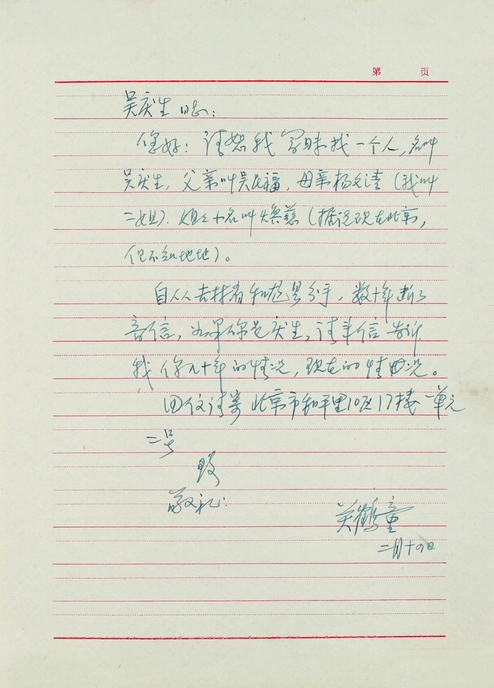 第 页
吴庆生同志：
您好！请恕我冒昧找一个人，名叫
吴庆生，父亲叫吴 福，母亲杨文清（我叫
二姐），姐姐小名叫焕慈（据说现在北京，
但不知地址）。
自从 吉林省 分手，数十年断了
音信，如果你是庆生，请来信告诉
我你几十年的情况，现在的情况。
回仪请寄 北京市和平里10区17栋一单元
二号
致
敬礼！
关鹤童
二月十四日